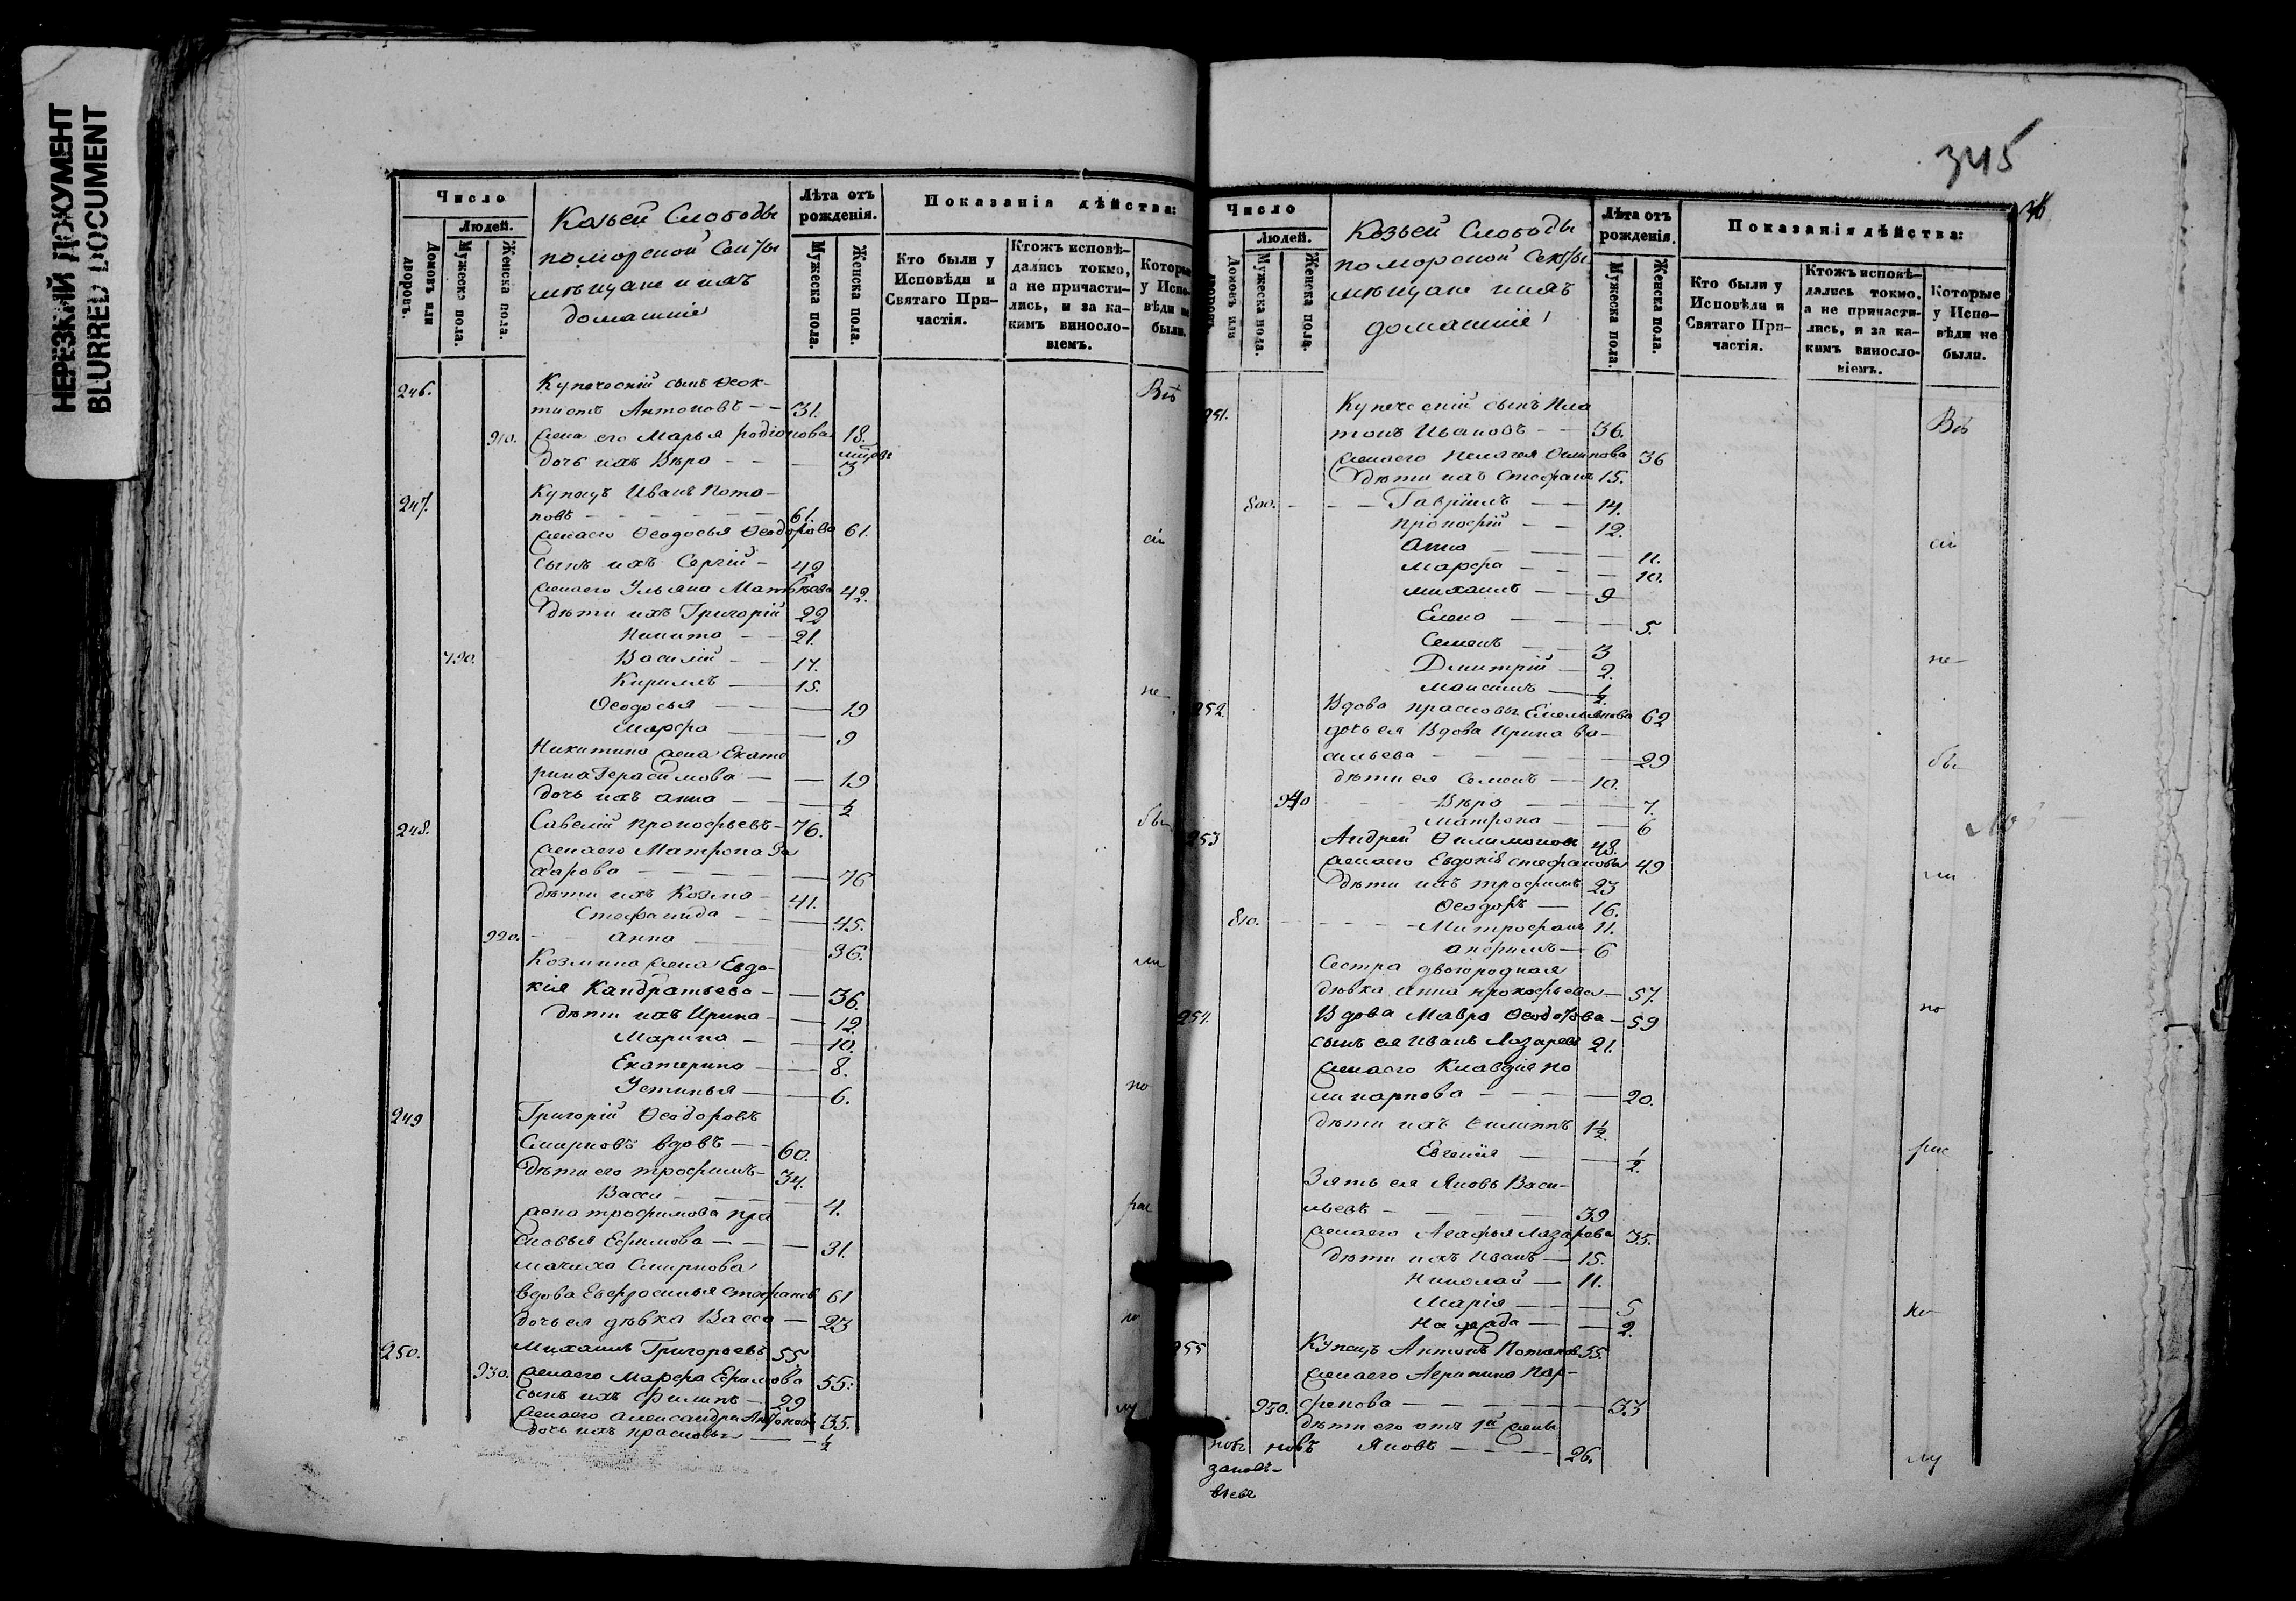 НЕРЕЗКИЙ ДОКУМЕНТ
BLURRED DOCUMENT
Число
Людей.
Домовъ или дворовъ.
Мужеска пола.
Женска пола.
Козьей Слободы
поморской Секты
мѣщане и ихъ
домашніе
Лѣта отъ рожденія.
Мужеска пола.
Женска пола.
Показанія дѣйства:
Кто были у Исповѣди и Святаго При-
частія.
Ктожъ исповѣ-
дались токмо,
а не причасти-
лись, и за ка-
кимъ винослo-
віемъ.
Которые
у Испо-
вѣди не
были.
246. Купеческій сынъ Ѳеок- Всѣ
тистъ Антоновъ — 31.
910. жена его Марья Родіонова 18.
дочь ихъ Вѣра — 3
247. Купецъ Иванъ Пота-
повъ — 61.
жена его Ѳеодосья Ѳеодорова 61. сіи
сынъ ихъ Сергій — 42
жена его Ульяна Матвѣева 42.
дѣти ихъ Григорій 22
Никита — 21.
790. Василій — 17.
Кириллъ — 15. не
Ѳеодосья — 19
Марфа — 9
Никитина жена Екате
рина Герасимова — 19
дочь ихъ Анна — ½
248. Савелій Прокофьевъ — 76. бы
жена его Матрона За
харова — 76
дѣти ихъ Козма — 41.
Стефанида — 45.
920. Анна — 36.
Козмина жена Евдо- ли
кія Кандратьева — 36.
дѣти ихъ Ирина — 12.
Марина — 10.
Екатерина — 8.
Устинья — 6. по
249 Григорій Ѳеодоровъ
Смирновъ вдовъ — 60.
дѣти его Трофимъ — 34.
Васса — 4.
жена Трофимова Пра рас
сковья Ефимова — 31.
мачиха Смирнова
вдова Евфросинья Стефанов 61
дочь ея дѣвка Васса — 23
250. Михаилъ Григорьевъ 55.
930. жена его Марфа Ефимова 55.
сынъ ихъ Филипъ — 29
жена его Александра Антонов 35.
дочь ихъ Прасковья — ½
345
Число
Людей.
Домовъ или дворовъ.
Мужеска пола.
Женска пола.
Козьей Слободы
поморской Секты
мѣщане и ихъ
домашніе
Лѣта отъ рожденія.
Мужеска пола.
Женска пола.
Показанія дѣйства:
Кто были у Исповѣди и Святаго При-
частія.
Ктожъ исповѣ-
дались токмо,
а не причасти-
лись, и за ка-
кимъ винослo-
віемъ.
Которые
у Испо-
вѣди не
были.
251. Купеческій сынъ Пла
тонъ Ивановъ — 36. Всѣ
жена его Пелагея Осипова 36
дѣти ихъ Стефанъ 15.
800. Гавріилъ — 14.
Прокофій — 12.
Анна — 11. сіи
Марфа — 10.
Михаилъ — 9
Елена — 5.
Семенъ — 3
Дмитрій — 2. не
Максимъ — ½
252. Вдова Прасковья Емельянова 62
дочь ея Вдова Ирина Ва-
сильева — 29 бы
дѣти ея Семенъ — 10.
940 Вѣра — 7.
Матрона — 6
253 Андрей Филимонов 48.
жена его Евдокія Стефанова 49
дѣти ихъ Трофимъ 23 ли
Ѳеодоръ — 16.
810. Митрофанъ 11.
Анфимъ — 6
Сестра двоюродная
дѣвка Анна Прокофьева — 57.
254. Вдова Мавра Ѳеодотова — 59 по
сынъ ея Иванъ Лазарев 21.
жена его Клавдія По
ликарпова — 20.
дѣти ихъ Филиппъ 1½.
Евгенія — ½. рас
Зять ея Яковъ Васи-
льевъ — 39
жена его Агафья Лазарева 35.
дѣти ихъ Иванъ — 15.
Николай — 11.
Марія — 5
Надежда — 2.
255 Купецъ Антонъ Потапов 55.
жена его Агрипина Пар-
950. фенова — 33
дѣти его отъ 1й жены
Яковъ — 26. лу